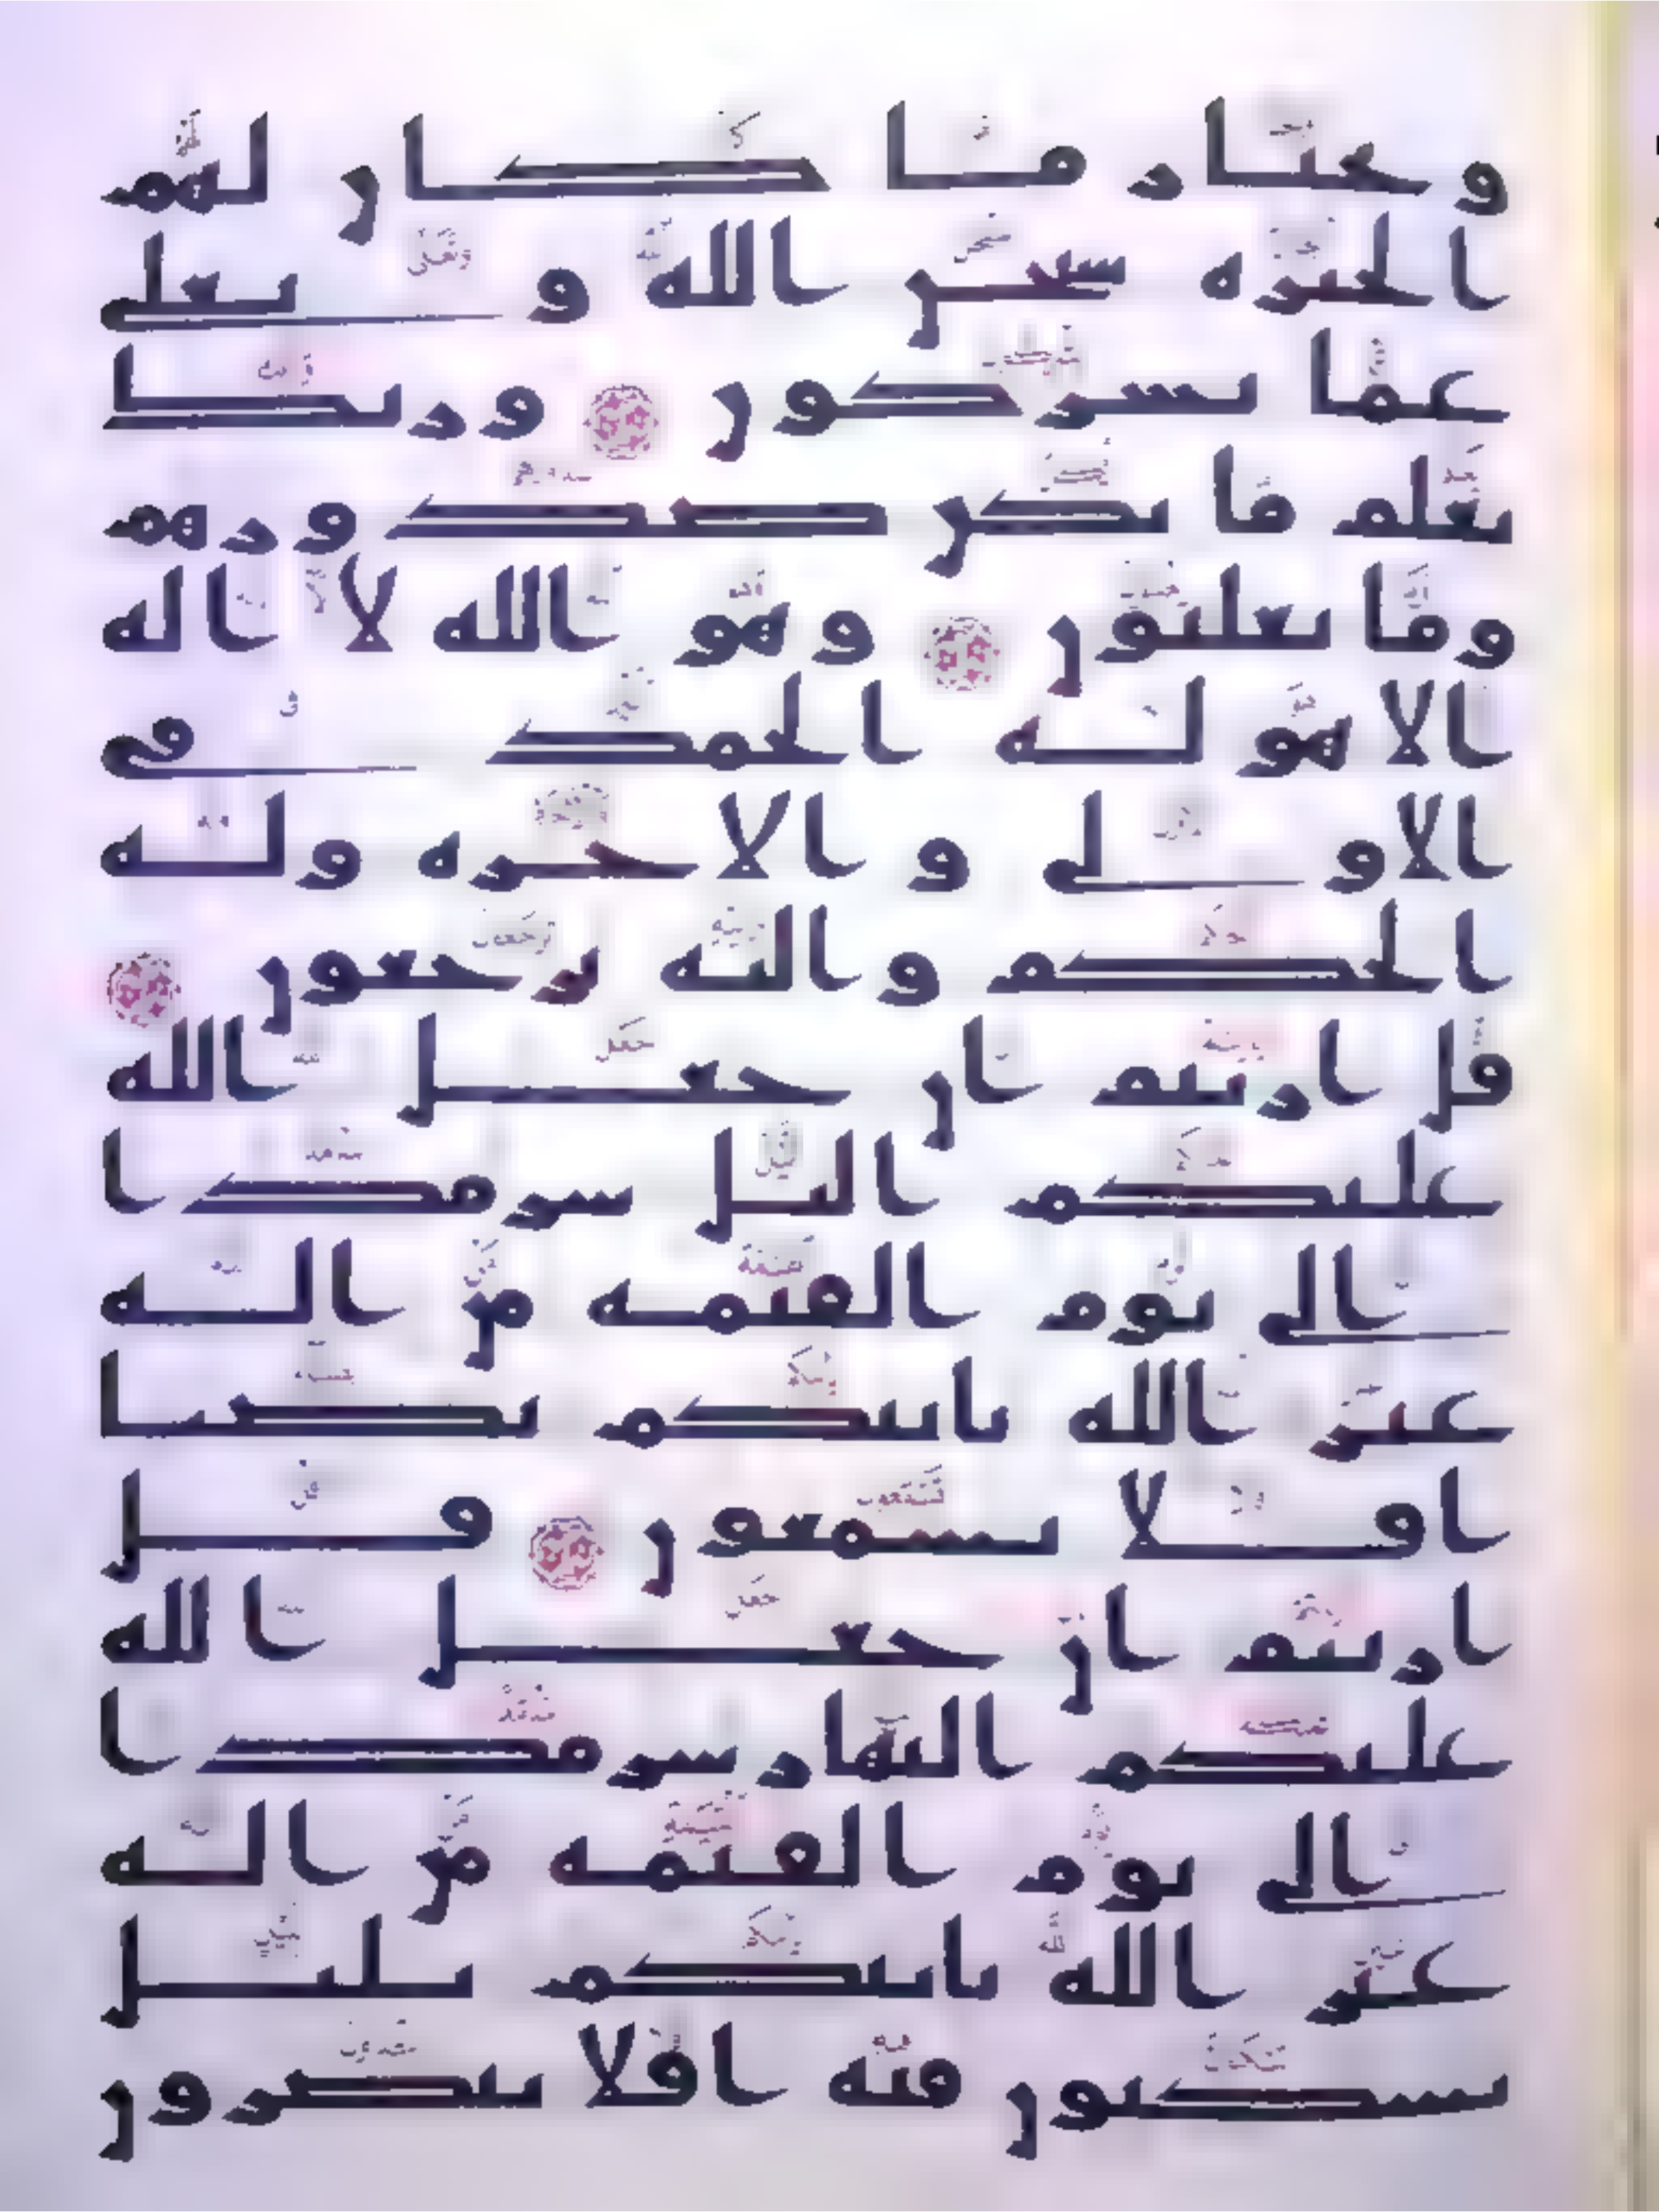 ويختار ما كان لهم
الخيره سبحن الله و تعلى
عما يشركون وربك
يعلم ما تكن صدورهم
وما يعلنون وهو الله لا اله
الا هو له الحمد في
الاولى و الاخره وله
الحكم واليه ترجعون
قل اريتم ان جعل الله
عليكم اليل سرمدا
الى يوم القيمه من اله
غير الله ياتيكم بضيا
افلا تسمعون قل
اريتم ان جعل الله
عليكم النهار سرمدا
الى يوم القيمه من اله
غير الله ياتيكم بليل
تسكنون فيه افلا تبصرون